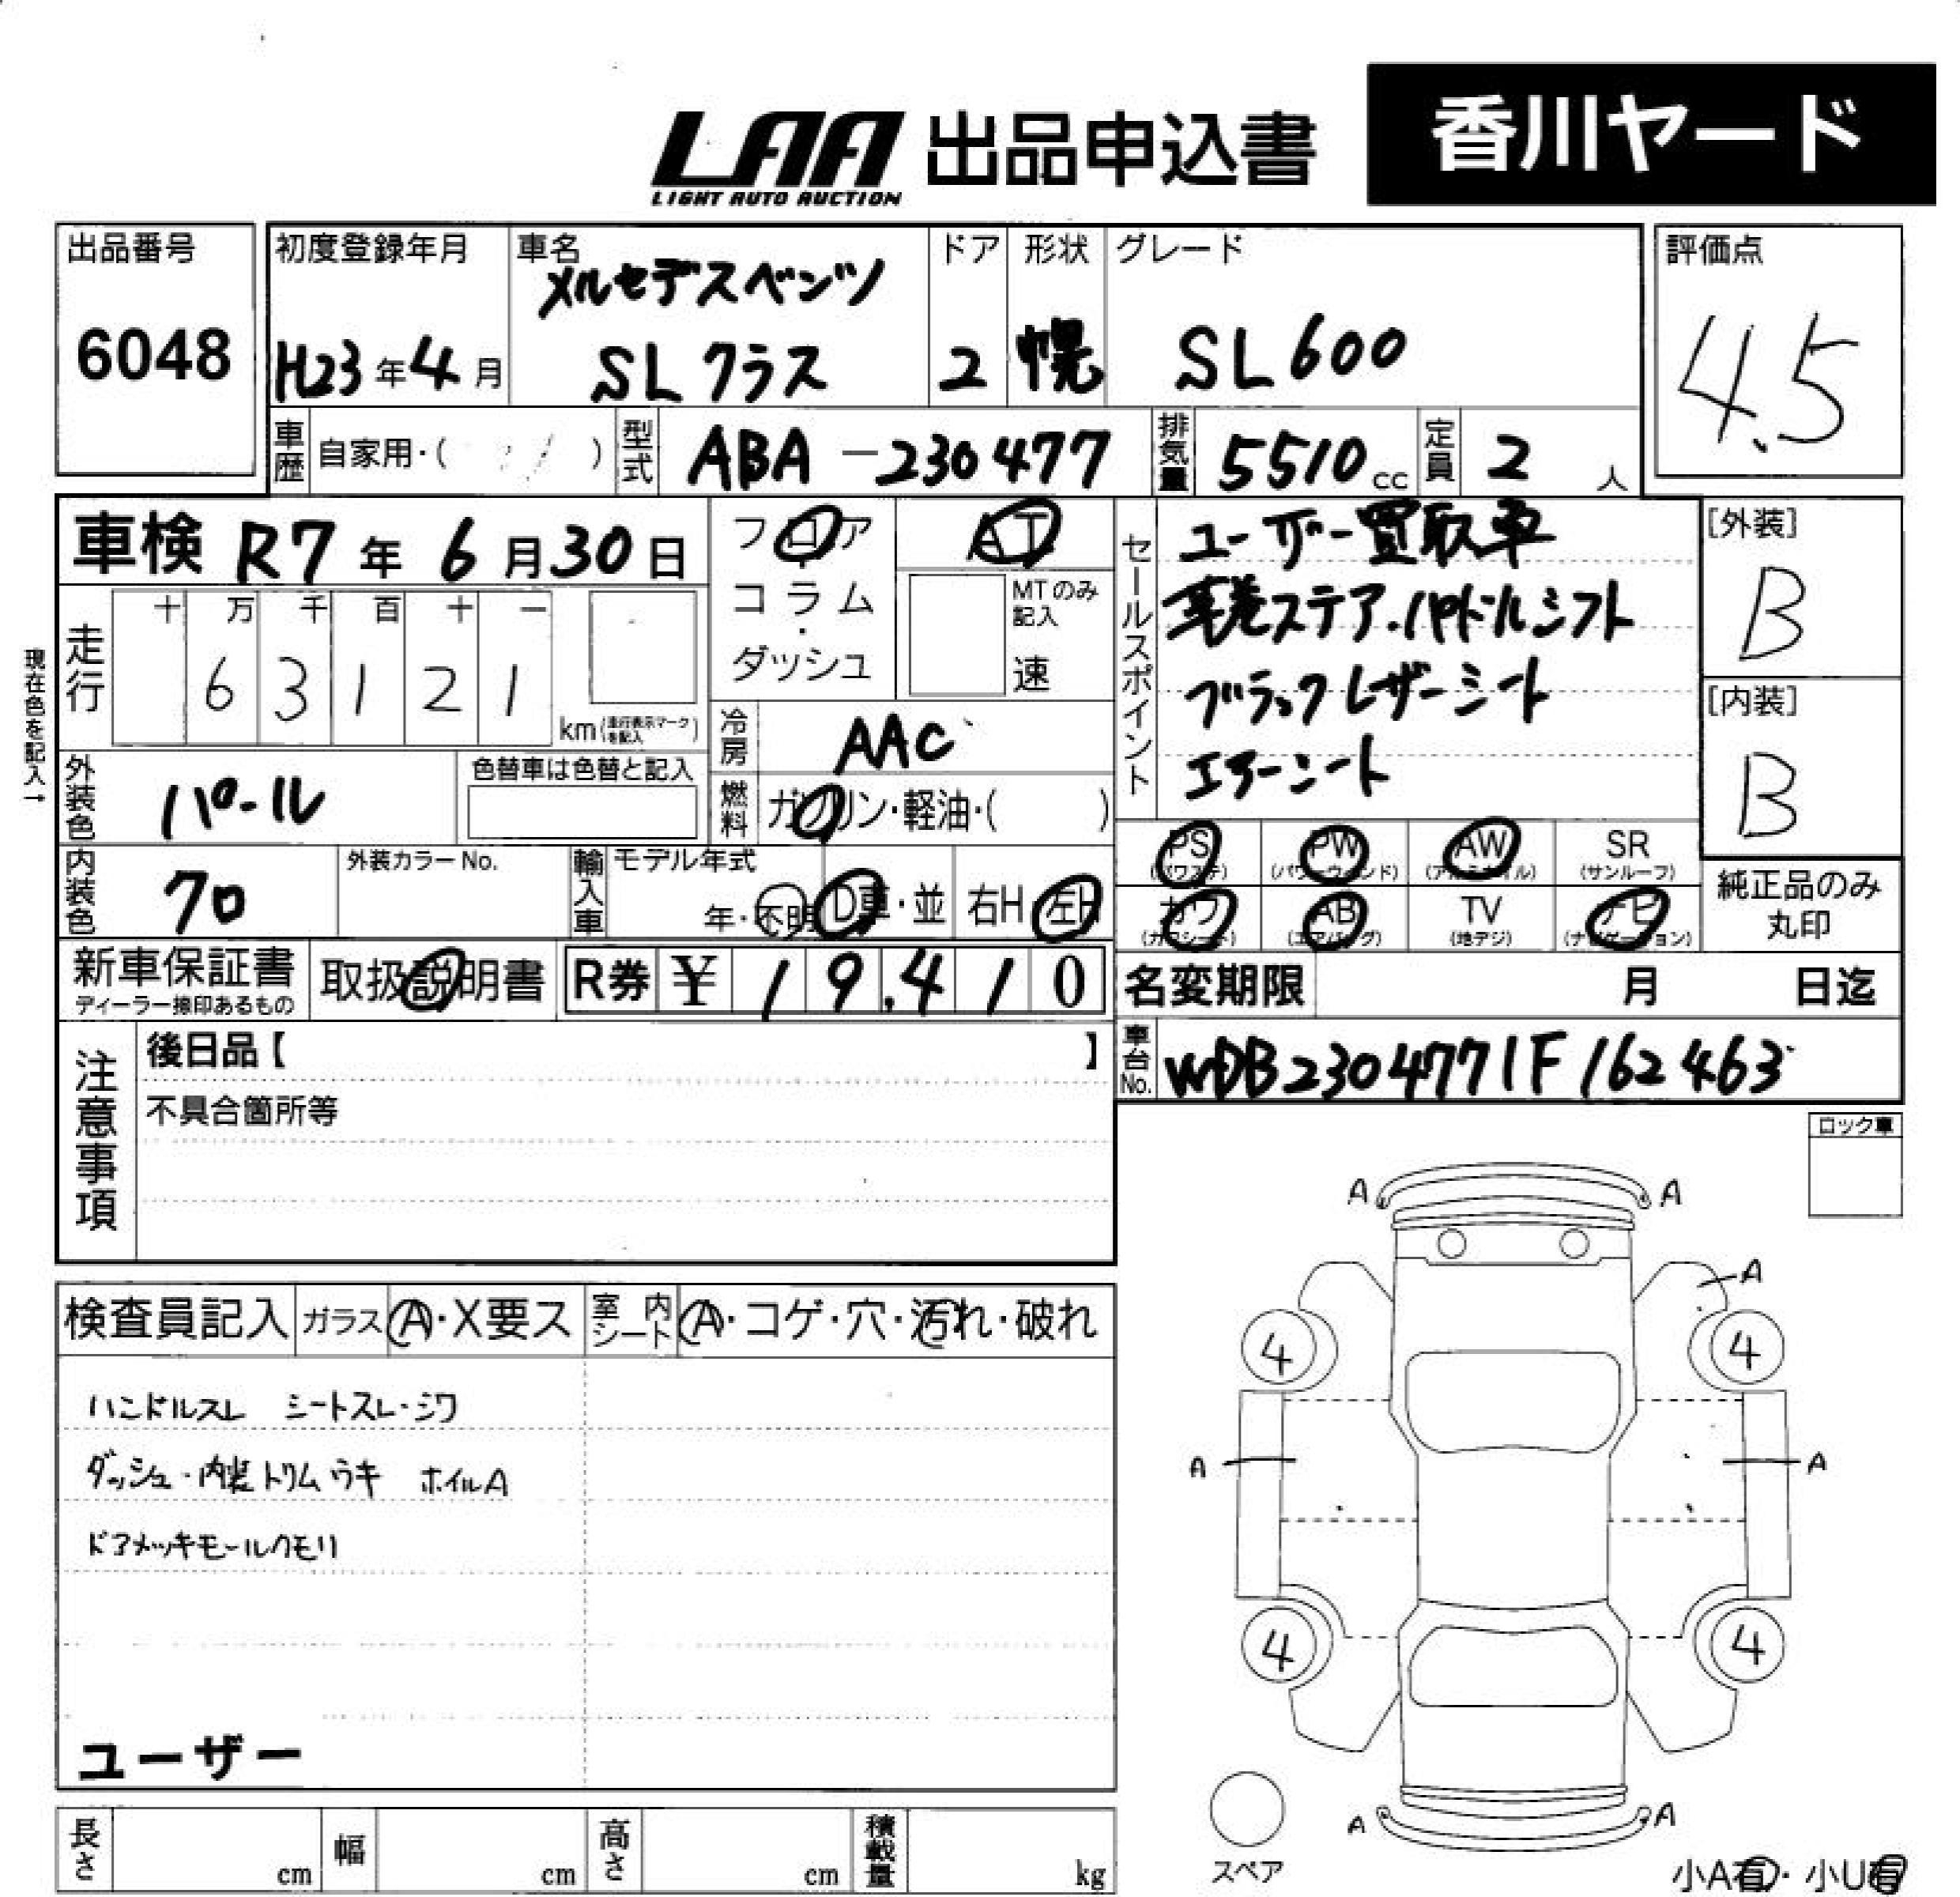 LAA 出品申込書 香川ヤード
LIGHT AUTO AUCTION
出品番号 初度登録年月 車名 ドア 形状 グレード 評価点
メルセデスベンツ
6048 H23年4月 SLクラス 2 幌 SL600 4.5
車歴 自家用・( ) 型式 ABA-230477 排気量 5510cc 定員 2人
車検 R7年6月30日
フロア AT
コラム・ MTのみ記入
ダッシュ 速
セールスポイント
ユーザー買取車
革巻ステア.パドルシフト
ブラックレザーシート
エアーシート
[外装]
B
[内装]
B
現在色を記入→
走行 十 万 千 百 十 一
63121
km(走行表示マークを記入)
冷房 AAC
外装色 パール 色替車は色替と記入
燃料 ガソリン・軽油・( )
PS PW AW SR
(パワステ) (パワーウィンド) (アルミホイル) (サンルーフ)
カワ AB TV ナビ
(カワシート) (エアバッグ) (地デジ) (ナビゲーション)
純正品のみ
丸印
内装色 クロ 外装カラーNo. 輸入車 モデル年式 年・不明 D車・並 右H 左H
新車保証書 取扱説明書 R券 ¥19,410
ディーラー捺印あるもの
名変期限 月 日迄
車台No. WDB2304771F162463
注意事項
後日品【 】
不具合箇所等
ロック車
検査員記入 ガラス A・X要ス 室内シート A・コゲ・穴・汚れ・破れ
ハンドルスレ シートスレ・シワ
ダッシュ・内装トリムウキ ホイルA
ドアメッキモールクモリ
ユーザー
A A
A
4 4
A A
4 4
A A
スペア
小A有・小U有
長さ cm 幅 cm 高さ cm 積載量 kg